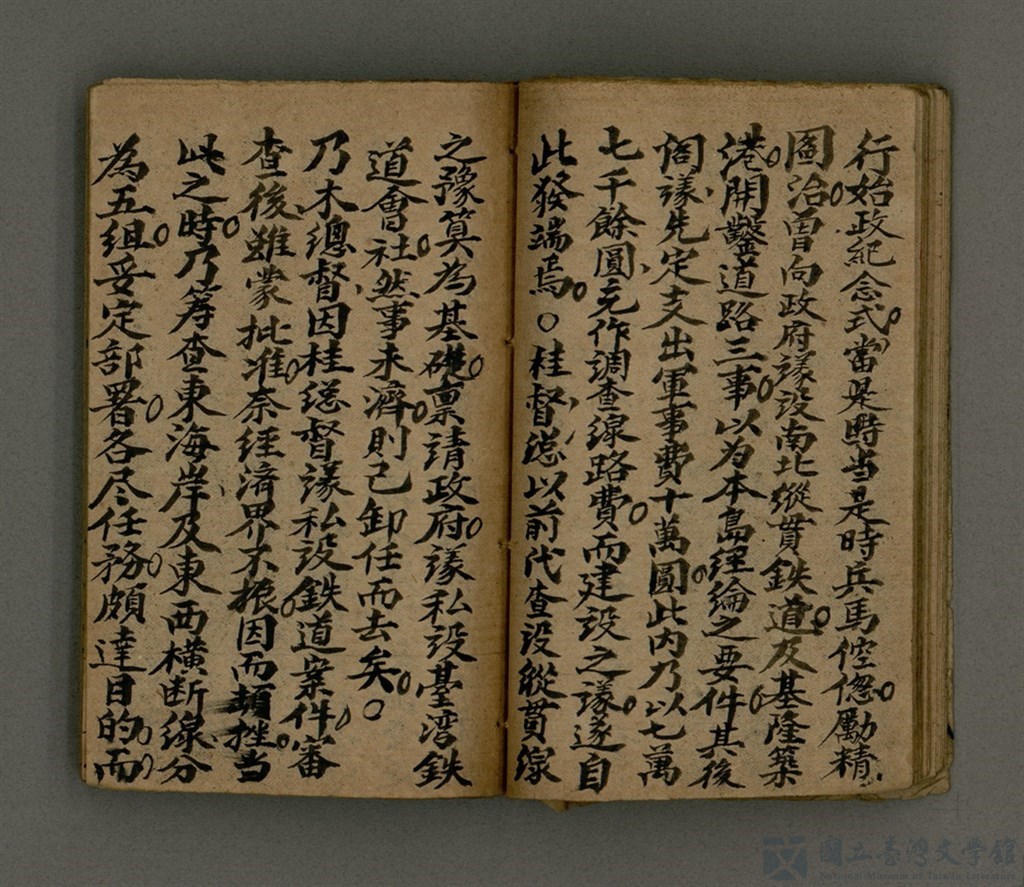 行始政紀念式。當是時当是時兵馬倥偬。勵精
圖治。曽向政府議設南北縱貫鉄道。及基隆築
港。開鑿道路三事。以为本島経綸之要件。其後
閣議先定支出軍事費十萬圓。此内乃以七萬
七千餘圓、充作調查線路費。而建設之議。遂自
此發端焉。○桂督总以前代查設縱貫線
之豫算為基礎。禀請政府。議私設臺湾鉄
道會社。然事未濟。則己卸任而去矣。○
乃木總督因桂総督議私設鉄道案件。審
查後雖蒙批准。奈経済界不振。因而頓挫。当
此之時。乃筹查東海岸及東西橫断線。分
為五組。妥定部署。各尽任務。頗達目的。而
國立臺灣文學館
National Museum of Taiwan Literature